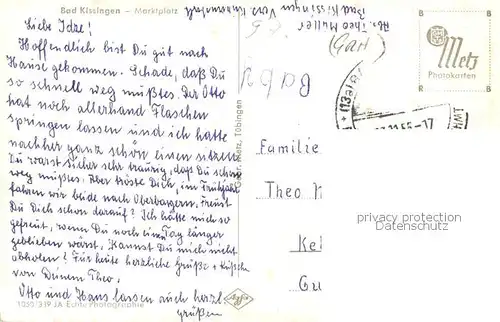 Bad Kissingen - Marktplatz
Liebe Idze!
Hoffendlich bist Du gut nach
Hause gekommen. Schade, daß Du
so schnell weg mußtes. Der Otto
hat noch allerhand Flaschen
springen lassen und ich hatte
nachher ganz schön einen sitzen.
Du warst sicher sehr traurig, daß Du schon
weg mußtes. Aber tröste Dich, im Frühjahr
fahren wir beide nach Oberbayern, Freust
Du Dich schon darauf? Ich hätte mich so
gefreut, wenn Du noch ein Tag länger
geblieben wärst, Kannst Du mich nicht
abholen? Für heute herzliche Grüße + Küßchen
von Deinem Theo.
Otto und Hans lassen auch herzl.
grüßen
1050/319 JA Echte Photographie
Agfa
Gebr. Metz, Tübingen
Abs. Theo Müller
Bad Kissingen
(Gast)
Metz
Photokarten
Familie
Theo
privacy protection
Datenschutz